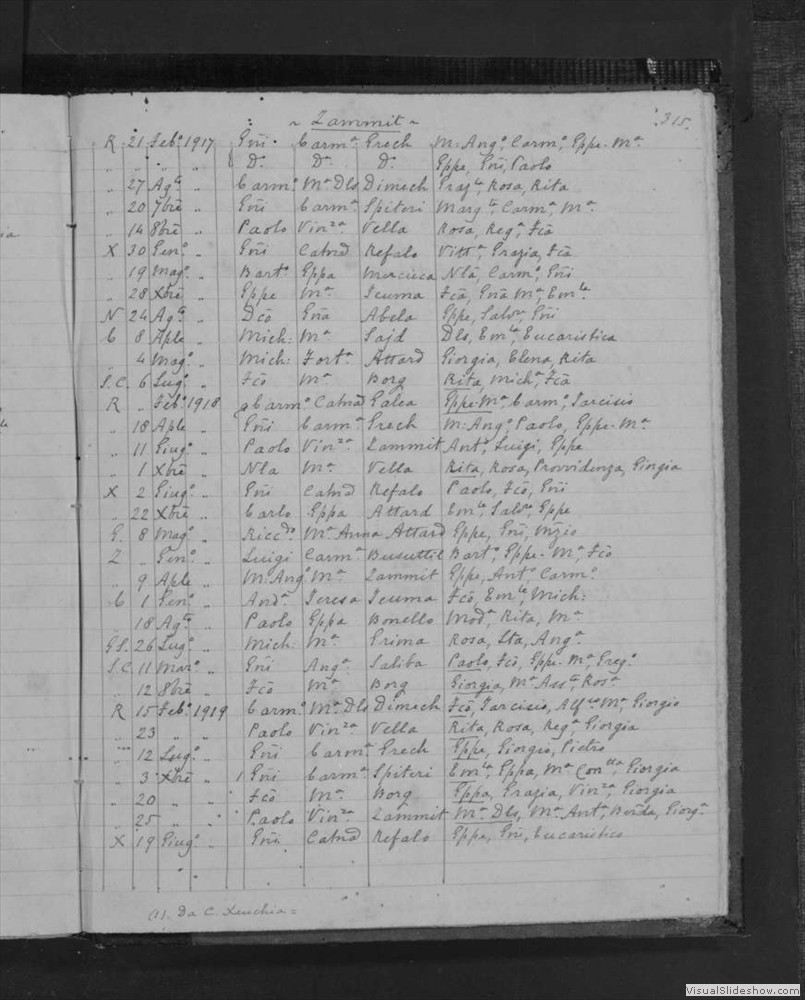 ~ Zammit ~ 315.
R 21 Feb.º 1917 Gñi. Carm.ª Grech M: Ang.º, Carm.º, Gppe-M.ª
„ „ „ „ { D.º D.º D.º Gppa, Gñi, Paolo
„ 27 Ag.to „ Carm.º M.ª Dls Dimech Graz.la, Rosa, Rita
„ 20 7bre „ Gñi Carm.ª Spiteri Marg.ta, Carm.ª, M.ª
„ 14 8bre „ Paolo Vin.za Vella Rosa, Reg.ª, Fcã
X 30 Gen.º „ Gñi Catnã Refalo Vitt.ª, Grazia, Fcã
„ 19 Mag.º „ Bart.º Gppa Mercieca Nla, Carm.º, Gñi
„ 28 Xbre „ Gppe M.ª Teuma Fcã, Gña M.ª, Em.la
N 24 Ag.to „ Dcõ Gña Abela Gppe, Salv.re, Gñi
C 8 Aple „ Mich: M.ª Sajd Dls, Em.la, Eucaristica
„ 4 Mag.º „ Mich: Fort.ª Attard Giorgia, Elena, Rita
S.C. 6 Lug.º „ Fcõ M.ª Borg Rita, Mich.ª, Fcã
R „ Feb.º 1918 Carm.º Catnã Galea Gppe-M.ª, Carm.º, Tarcisio
„ 18 Aple „ Gñi Carm.ª Grech M: Ang.º, Paolo, Gppe-M.ª
„ 11 Giug.º „ Paolo Vin.za Zammit Ant.º, Luigi, Gppe
„ 1 Xbre „ Nla M.ª Vella Rita, Rosa, Provvidenza, Giorgia
X 2 Giug.º „ Gñi Catnã Refalo Paolo, Fcõ, Gñi
„ 22 Xbre „ Carlo Gppa Attard Em.le, Salv.re, Gppe
G. 8 Mag.º „ Ricc.do M.ª Anna Attard Gppe, Gñi, Vnzio
Z „ Gen.º „ Luigi Carm.ª Busuttil Bart.º, Gppe-M.ª, Fcõ
„ 9 Aple „ M: Ang.º M.ª Zammit Gppe, Ant.º, Carm.º
C 1 Gen.º „ And.ª Teresa Teuma Fcõ, Em.le, Mich:
„ 18 Ag.to „ Paolo Gppa Bonello Mad.ª, Rita, M.ª
G.S. 26 Lug.º „ Mich: M.ª Grima Rosa, Sta, Ang.ª
S.C. 11 Mar.º „ Gñi Ang.ª Saliba Paolo, Fcõ, Gppe-M.ª, Greg.º
„ 12 8bre „ Fcõ M.ª Borg Giorgia, M.ª Ass.ta, Ros.ª
R 15 Feb.º 1919 Carm.º M.ª Dls Dimech Fcõ, Tarcisio, Alf.so M.ª, Giorgio
„ 23 „ „ Paolo Vin.za Vella Rita, Rosa, Reg.ª, Giorgia
„ 12 Lug.º „ Gñi Carm.ª Grech Gppe, Giorgio, Pietro
„ 3 Xbre „ 1 Gñi Carm.ª Spiteri Em.la, Gppa, M.ª Con.tta, Giorgia
„ 20 „ „ Fcõ M.ª Borg Gppa, Grazia, Vin.za, Giorgia
„ 25 „ „ Paolo Vin.za Zammit M.ª Dls, M.ª Ant.ª, Giorg.ª
X 19 Giug.º „ Gñi Catnã Refalo Gppa, Gñi, Eucaristico
(1). Da C. Xeuchia =
VisualSlideshow.com